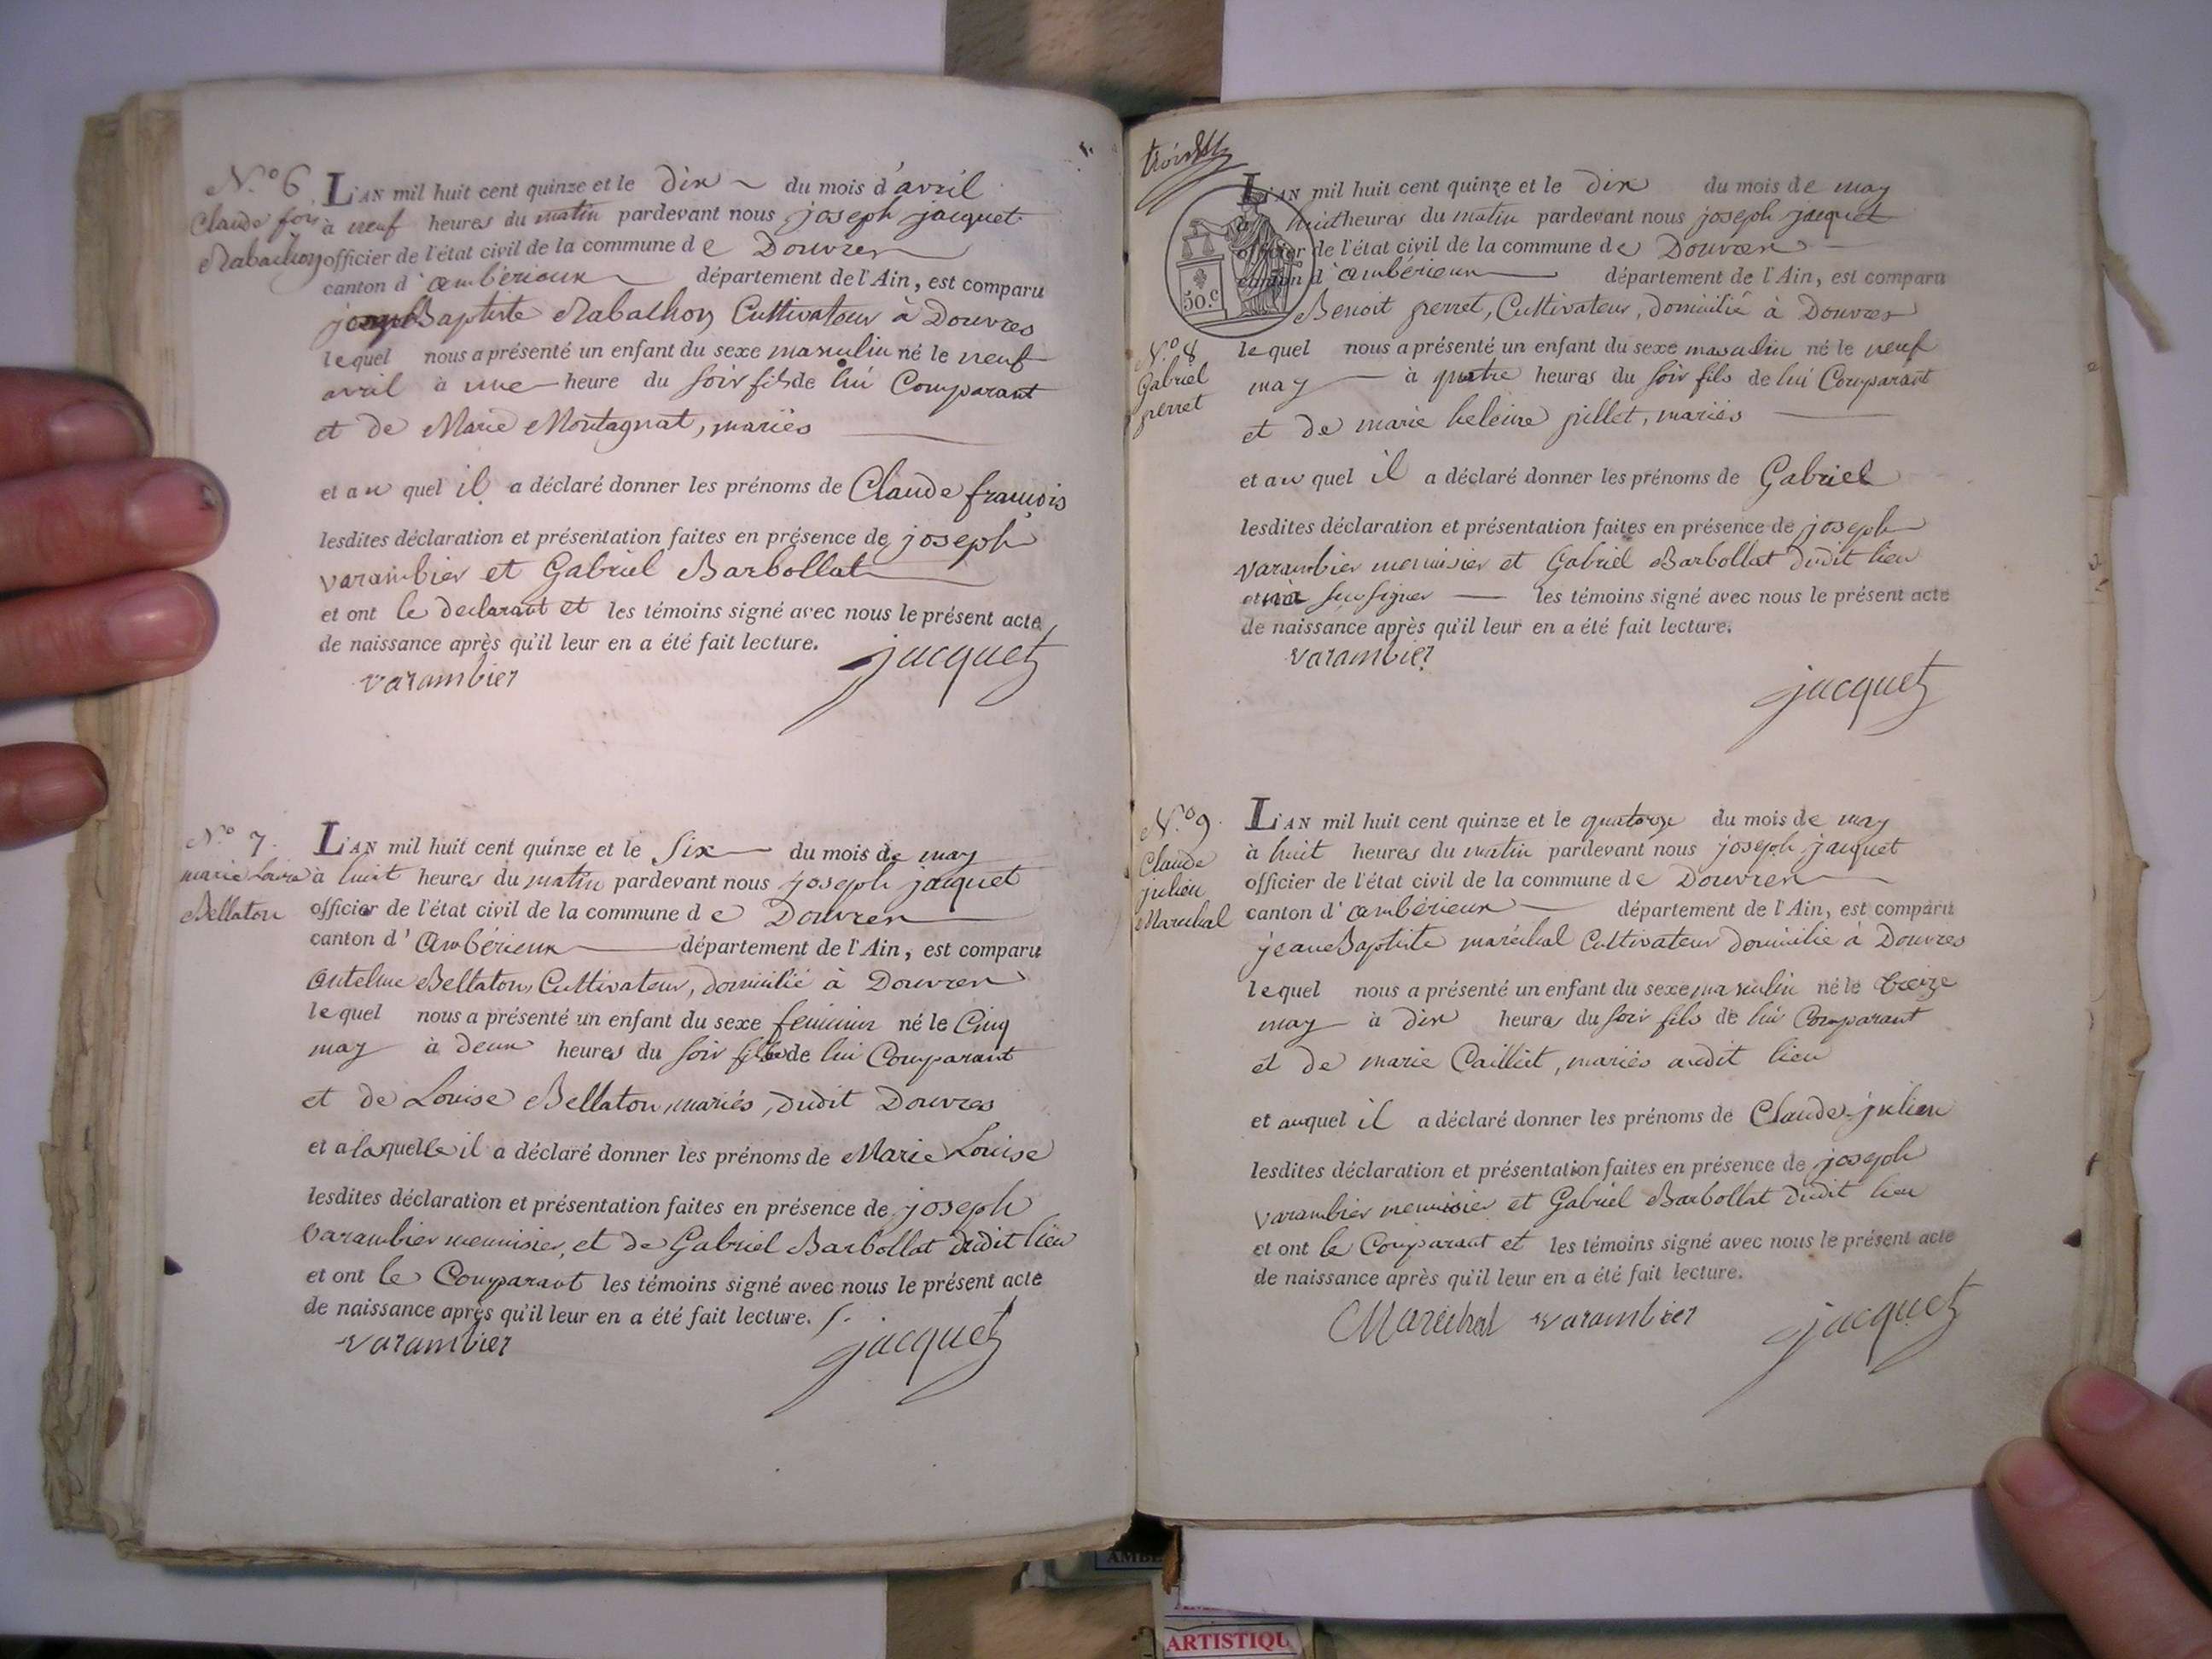 N.º 6
Claude fois
Rabathon
L'AN mil huit cent quinze et le dix du mois d'avril
à neuf heures du matin pardevant nous joseph jacquet
officier de l'état civil de la commune de Douvres
canton d'ambérieux département de l'Ain, est comparu
Baptiste Rabathon Cultivateur à Douvres
lequel nous a présenté un enfant du sexe masculin né le neuf
avril à une heure du soir fils de lui Comparant
et de Marie Montagnat, mariés
et au quel il a déclaré donner les prénoms de Claude françois
lesdites déclaration et présentation faites en présence de joseph
varambier et Gabriel Barbollat
et ont le declarant et les témoins signé avec nous le présent acte
de naissance après qu'il leur en a été fait lecture.
varambier jacquet
N.º 7.
marie Louise
Bellaton
L'AN mil huit cent quinze et le Six du mois de may
à huit heures du matin pardevant nous joseph jacquet
officier de l'état civil de la commune de Douvres
canton d'Ambérieux département de l'Ain, est comparu
antelme Bellaton, Cultivateur, domicilié à Douvres
lequel nous a présenté un enfant du sexe feminin né le Cinq
may à deux heures du soir fille de lui Comparant
et de Louise Bellaton mariés, dudit Douvres
et a laquelle il a déclaré donner les prénoms de Marie Louise
lesdites déclaration et présentation faites en présence de joseph
varambier menuisier, et de Gabriel Barbollat dudit lieu
et ont le Comparant les témoins signé avec nous le présent acte
de naissance après qu'il leur en a été fait lecture.
varambier jacquet
50.c
N.º 8
Gabriel
perret
L'AN mil huit cent quinze et le dix du mois de may
à huit heures du matin pardevant nous joseph jacquet
officier de l'état civil de la commune de Douvres
canton d'ambérieux département de l'Ain, est comparu
Benoit perret, Cultivateur, domicilié à Douvres
lequel nous a présenté un enfant du sexe masculin né le neuf
may à quatre heures du soir fils de lui Comparant
et de marie heleine pillet, mariés
et au quel il a déclaré donner les prénoms de Gabriel
lesdites déclaration et présentation faites en présence de joseph
varambier menuisier et Gabriel Barbollat dudit lieu
signer les témoins signé avec nous le présent acte
de naissance après qu'il leur en a été fait lecture.
varambier
jacquet
N.º 9.
Claude
julien
Marechal
L'AN mil huit cent quinze et le quatorze du mois de may
à huit heures du matin pardevant nous joseph jacquet
officier de l'état civil de la commune de Douvres
canton d'ambérieux département de l'Ain, est comparu
jean Baptiste maréchal Cultivateur domicilié à Douvres
lequel nous a présenté un enfant du sexe masculin né le treize
may à dix heures du soir fils de lui Comparant
et de marie Cailliet, mariés audit lieu
et auquel il a déclaré donner les prénoms de Claude-julien
lesdites déclaration et présentation faites en présence de joseph
varambier menuisier et Gabriel Barbollat dudit lieu
et ont le Comparant et les témoins signé avec nous le présent acte
de naissance après qu'il leur en a été fait lecture.
Maréchal varambier jacquet
ARTISTIQU